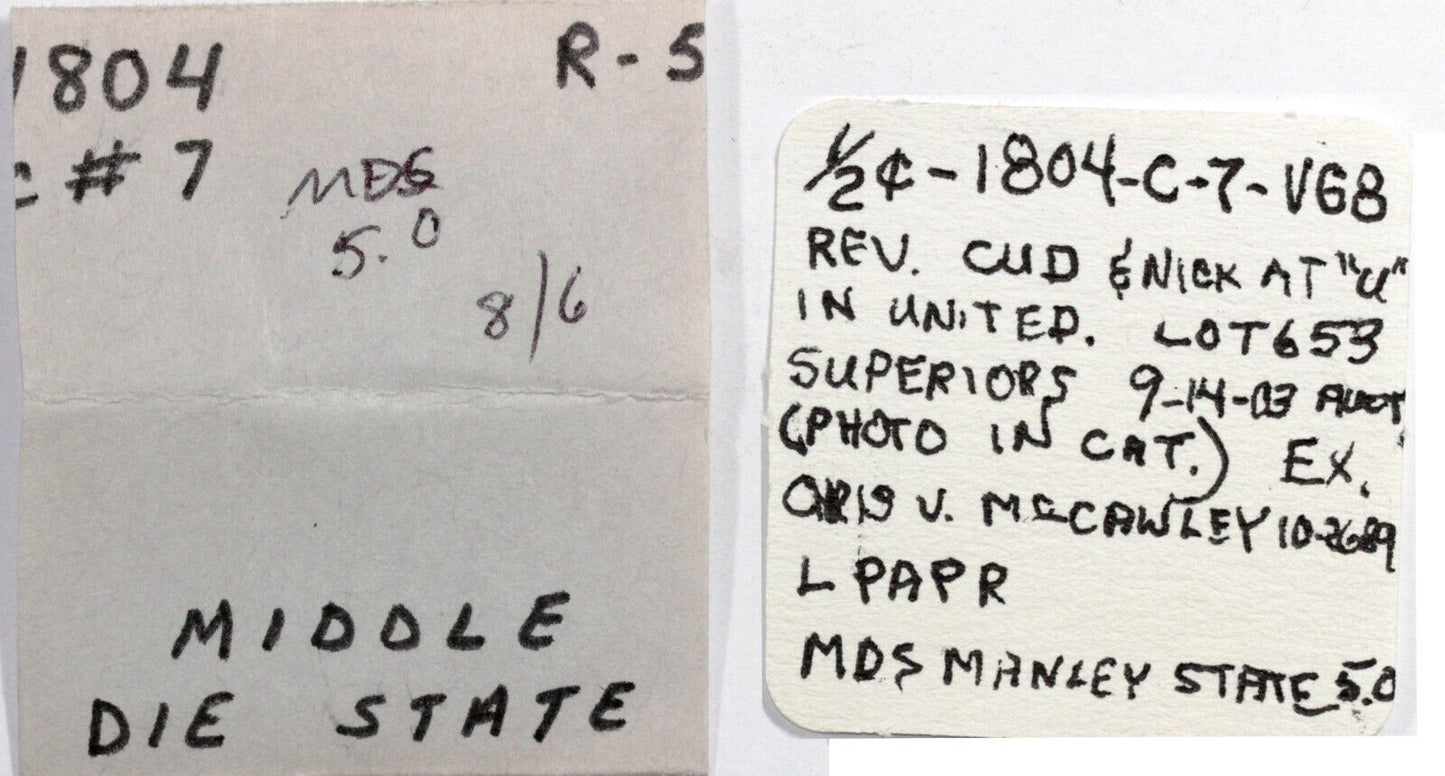 1804 R-5
C #7
MDS
5.0
8/6
MIDDLE
DIE STATE
1/2¢-1804-C-7-VG8
REV. CUD & NICK AT "U"
IN UNITED. LOT 653
SUPERIORS 9-14-03 AUCT.
(PHOTO IN CAT.) EX.
CHRIS V. McCAWLEY 10-26-89
LPAPR
MDS MANLEY STATE 5.0